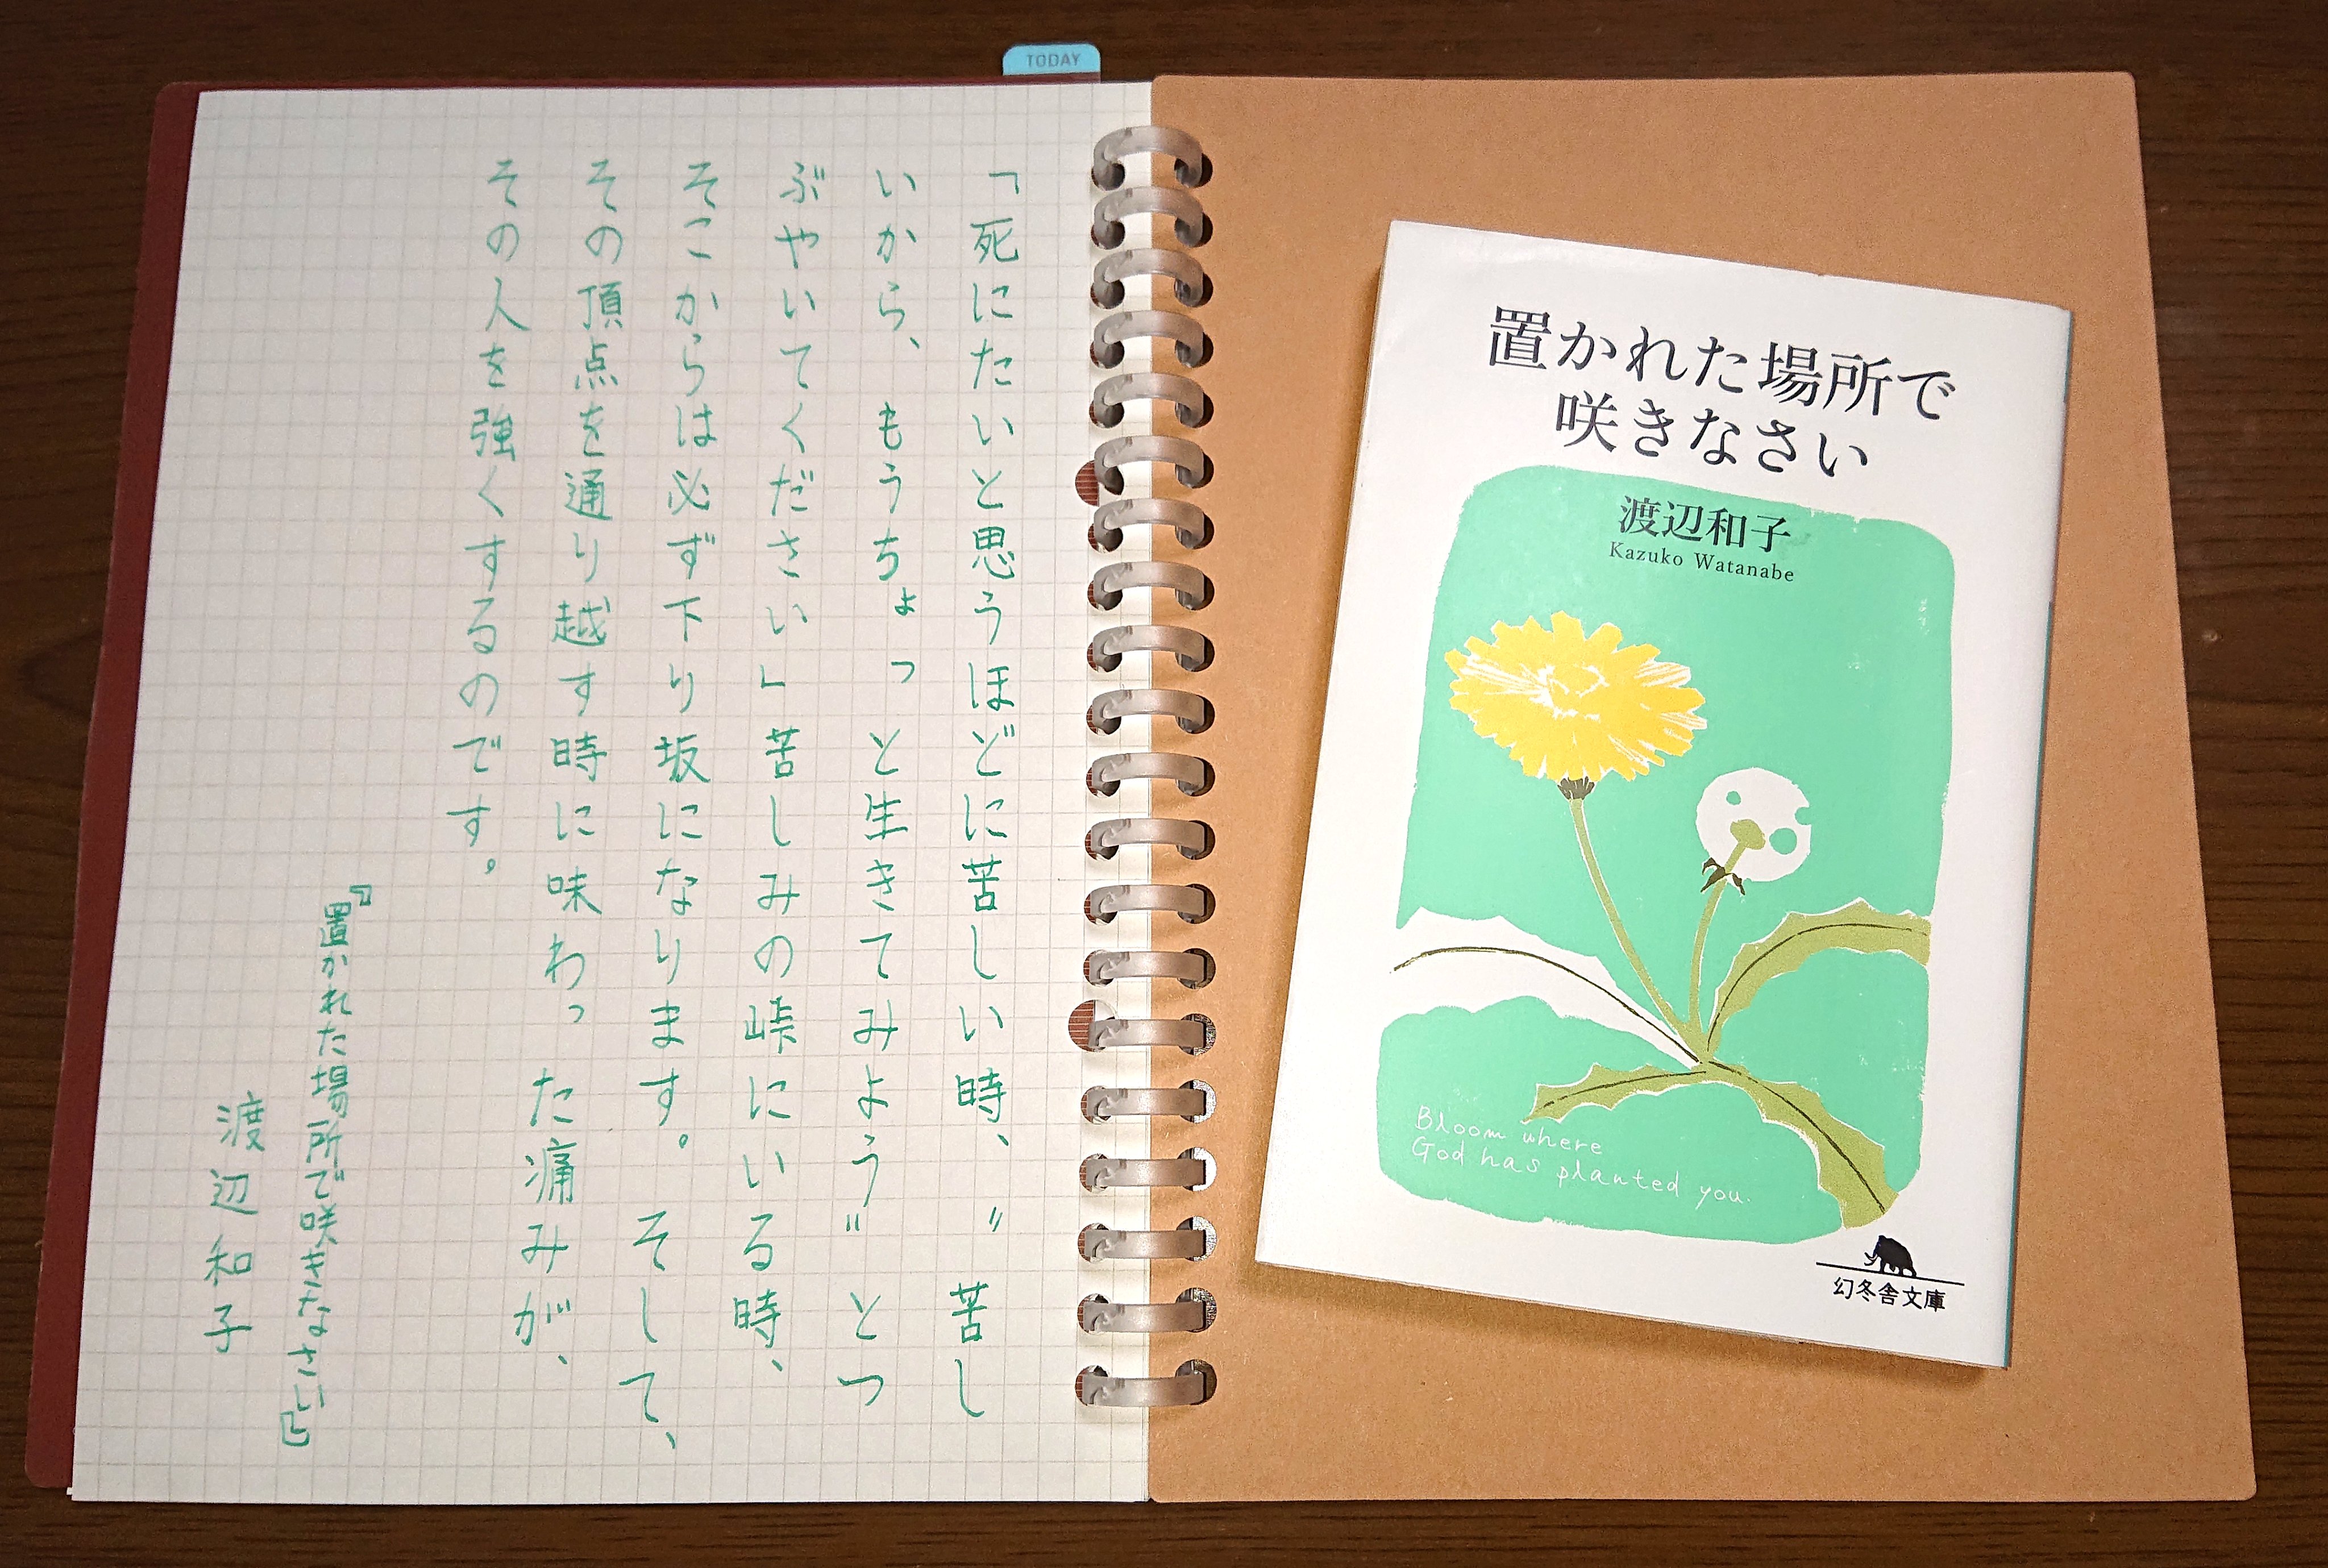 TODAY
「死にたいと思うほどに苦しい時、〝苦し
いから、もうちょっと生きてみよう〟とつ
ぶやいてください」苦しみの峠にいる時、
そこからは必ず下り坂になります。そして、
その頂点を通り越す時に味わった痛みが、
その人を強くするのです。
『置かれた場所で咲きなさい』
渡辺和子
置かれた場所で
咲きなさい
渡辺和子
Kazuko Watanabe
Bloom where
God has planted you.
幻冬舎文庫